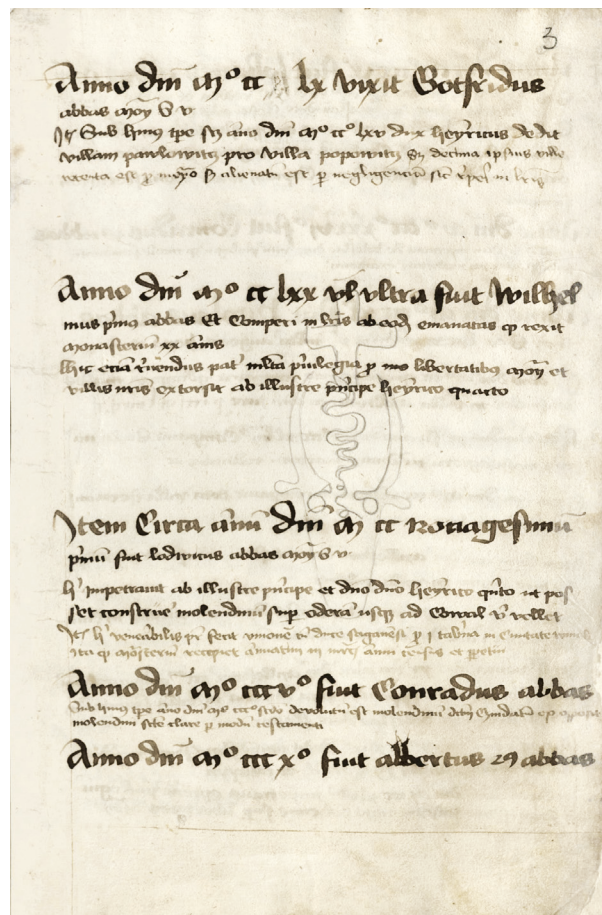 3
Anno dm̄ mº cc lx vixit Gotfridus
abbas mon̄ S v
Itē Sub huius tpe sꝫ āno dm̄ mº ccº lxv dux heȳricus dedit
villam pawlowitꝫ pro villa popowitꝫ Sꝫ decima ipsius ville
retenta est p mon̄io Sꝫ alienata est p negligenciā
Anno dm̄ mº cc lxx vl̄ vltra fuit wilhel
mus pm̄us abbas Et Comperi in lr̄is ab eodē emanatas qp rexit
monasteriū xx ānis
hic eciā revendus pat̄ ml̄ta pīuilegia p suo libertatibus mon̄ et
villis nr̄is extorsit ab illustre pn̄cipe heȳrico quarto
Item Circa ānū dm̄ m cc Nonagesimū
pm̄ū fuit lodwicus abbas moȳ S v
hic impetrauit ab illustre pn̄cipe et dn̄o dn̄o heȳrico qn̄to ut pos
set construe molendinū sup oderā usqꝫ ad vellet
Itē hic venerabilis pr̄ fecit unionē cū duce saganēsi p i tab̄na in Ciuitate
ita qp mōsteriū recipiet annuatim
Anno dm̄ mº ccc vº fuit Conradus abbas
Sub huius tpe āno dm̄ mº cccº scd̄o deuolutū est molendinū
molendinū scē clare p modū testamenti
Anno dm̄ mº ccc xº fuit albertus abbas